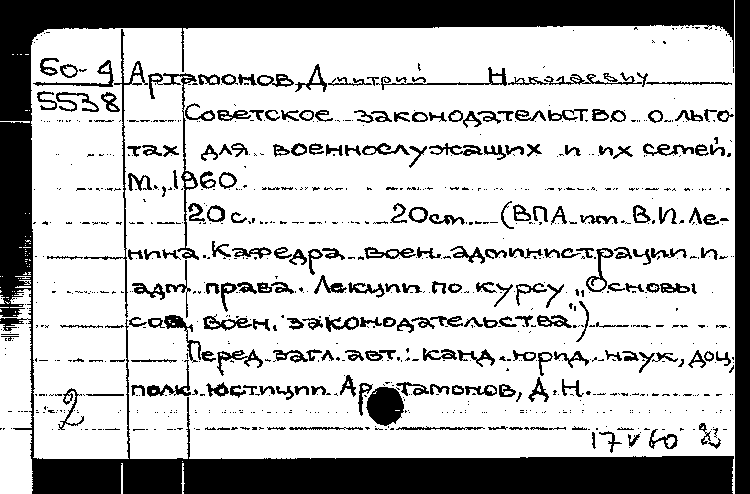 60-4 Артамонов, Дмитрий Николаевич
5538
Советское законодательство о льго-
тах для военнослужащих и их семей.
М., 1960.
20с. 20см. (ВПА им. В.И. Ле-
нина. Кафедра воен. администрации и
адм. права. Лекции по курсу „Основы
сов. воен. законодательства").
Перед загл. авт.: канд. юрид. наук, доц.,
полк. юстиции Артамонов, Д.Н.
2
17 V 60